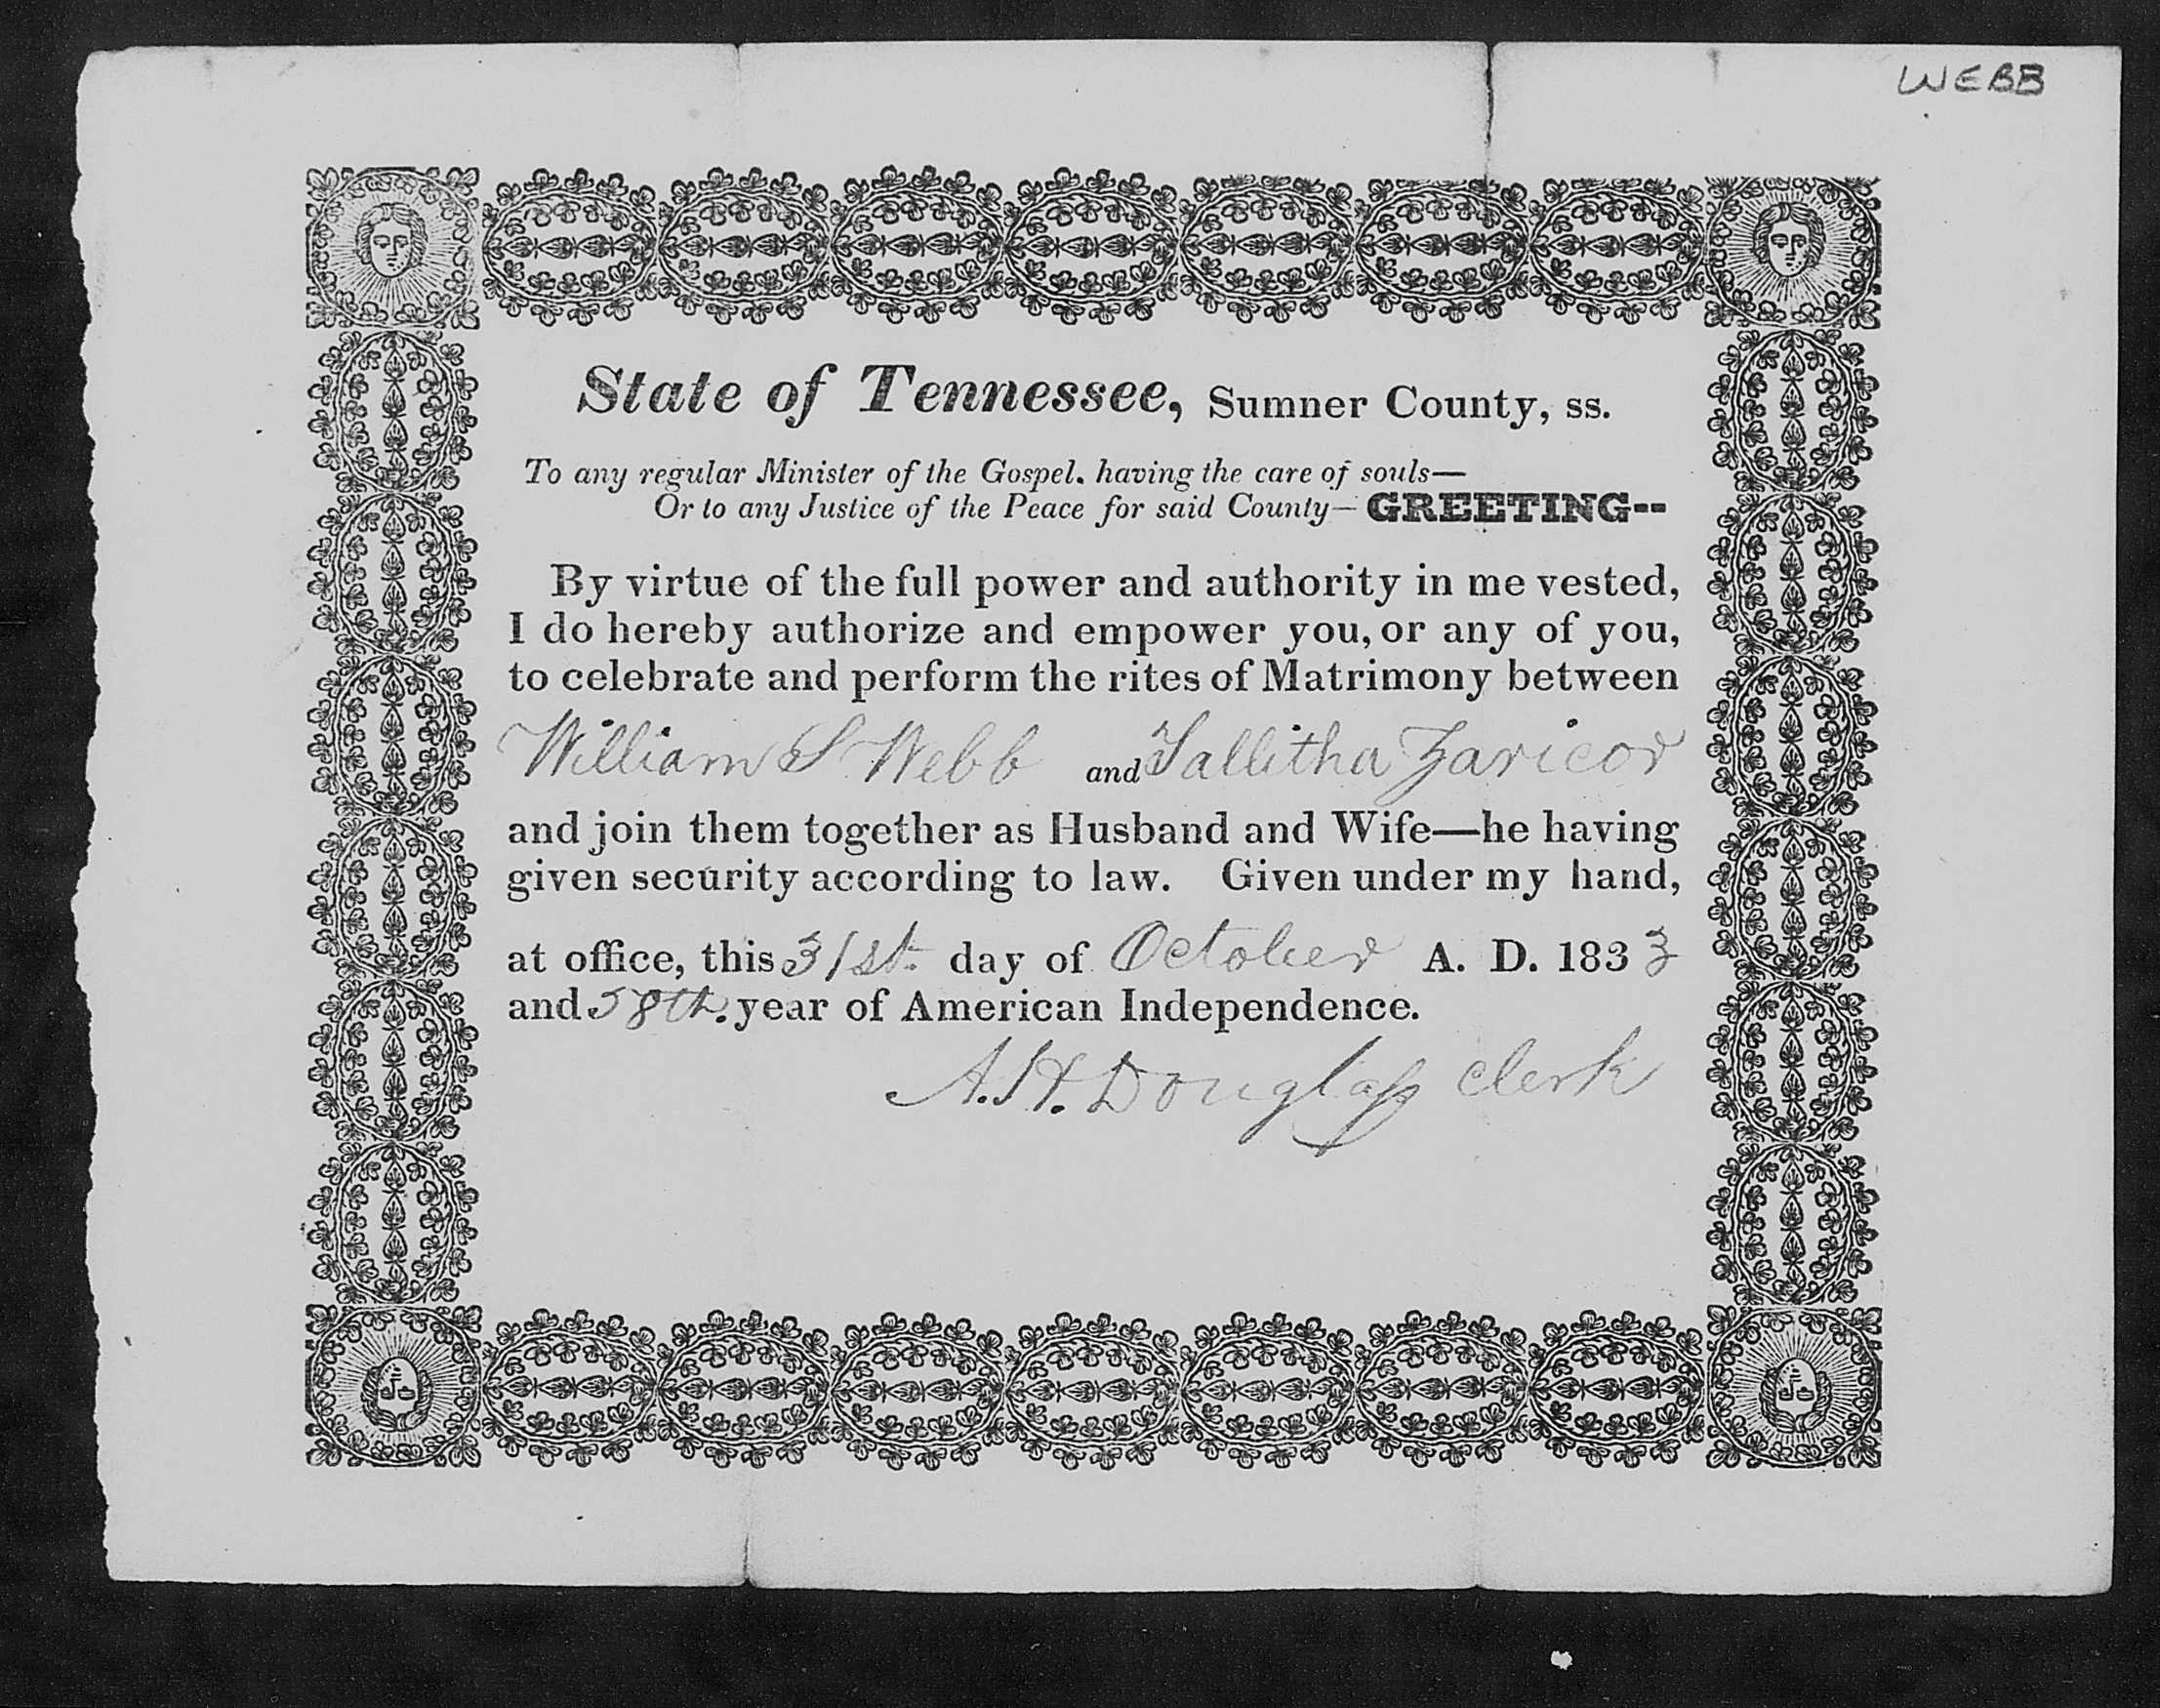 WEBB
State of Tennessee, Sumner County, ss.
To any regular Minister of the Gospel, having the care of souls—
Or to any Justice of the Peace for said County—GREETING--
By virtue of the full power and authority in me vested,
I do hereby authorize and empower you, or any of you,
to celebrate and perform the rites of Matrimony between
William S Webb and Tallitha Zaricor
and join them together as Husband and Wife—he having
given security according to law. Given under my hand,
at office, this 31st. day of October A. D. 1833
and 58th. year of American Independence.
A. H. Douglass Clerk